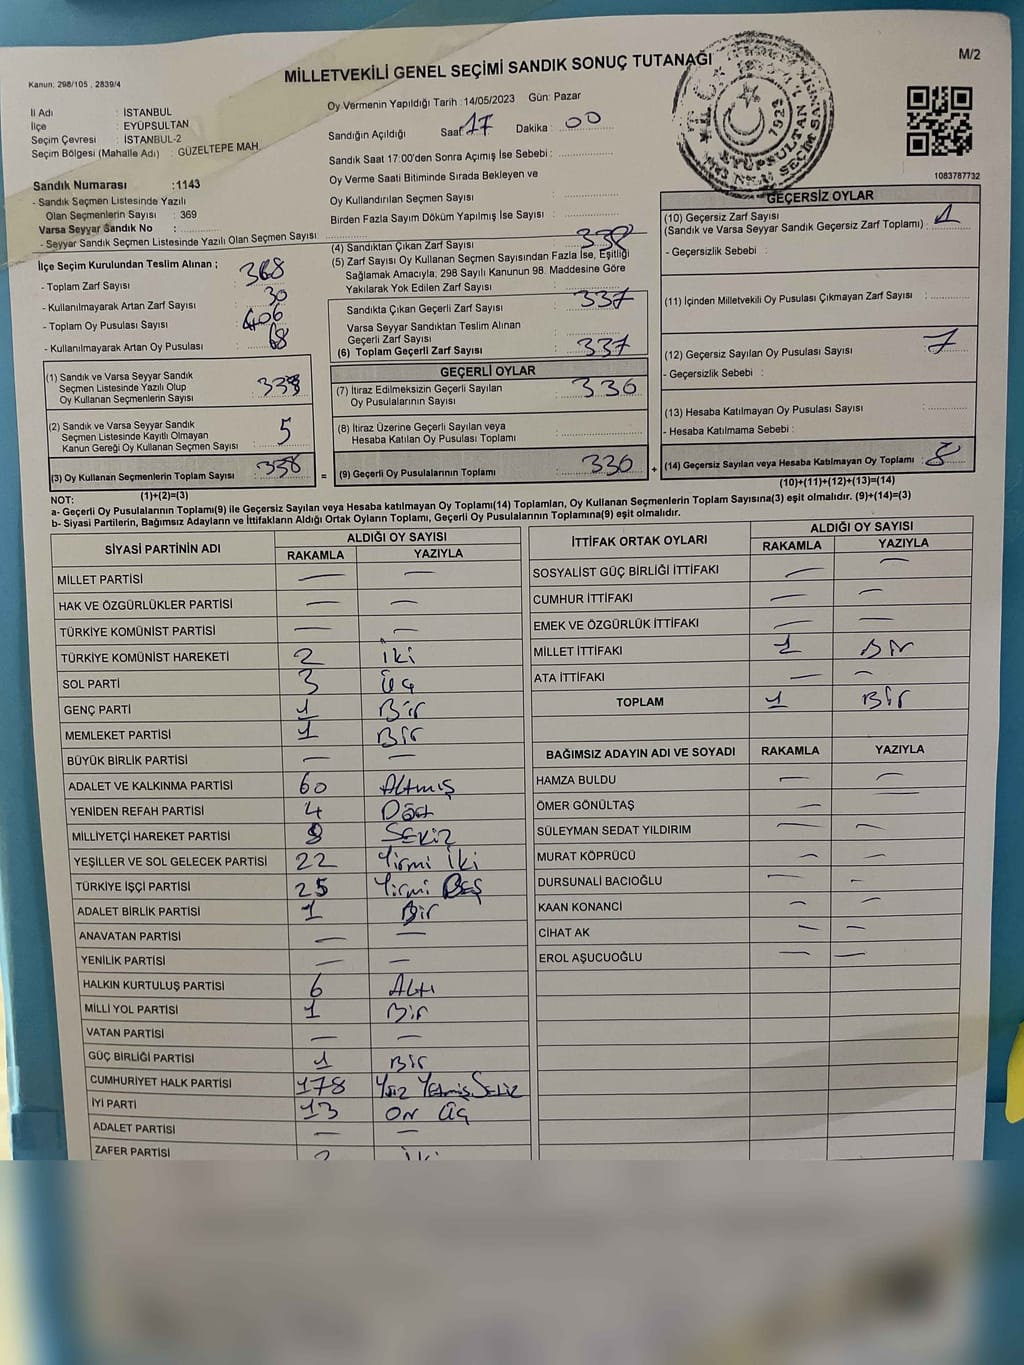 Kanun: 298/105 , 2839/4
MİLLETVEKİLİ GENEL SEÇİMİ SANDIK SONUÇ TUTANAĞI
M/2
İl Adı : İSTANBUL
İlçe : EYÜPSULTAN
Seçim Çevresi : İSTANBUL-2
Seçim Bölgesi (Mahalle Adı) : GÜZELTEPE MAH.
Oy Vermenin Yapıldığı Tarih :14/05/2023 Gün: Pazar
Sandığın Açıldığı Saat 17 Dakika : 00
Sandık Saat 17:00'den Sonra Açımış İse Sebebi :
Oy Verme Saati Bitiminde Sırada Bekleyen ve
Oy Kullandırılan Seçmen Sayısı :
Birden Fazla Sayım Döküm Yapılmış İse Sayısı :
1083787732
Sandık Numarası :1143
- Sandık Seçmen Listesinde Yazılı
Olan Seçmenlerin Sayısı : 369
Varsa Seyyar Sandık No :
- Seyyar Sandık Seçmen Listesinde Yazılı Olan Seçmen Sayısı :
İlçe Seçim Kurulundan Teslim Alınan ;
- Toplam Zarf Sayısı : 368
- Kullanılmayarak Artan Zarf Sayısı : 30
- Toplam Oy Pusulası Sayısı : 406
- Kullanılmayarak Artan Oy Pusulası : 68
(1) Sandık ve Varsa Seyyar Sandık
Seçmen Listesinde Yazılı Olup
Oy Kullanan Seçmenlerin Sayısı :
(2) Sandık ve Varsa Seyyar Sandık
Seçmen Listesinde Kayıtlı Olmayan
Kanun Gereği Oy Kullanan Seçmen Sayısı : 5
(3) Oy Kullanan Seçmenlerin Toplam Sayısı : 338
(4) Sandıktan Çıkan Zarf Sayısı : 338
(5) Zarf Sayısı Oy Kullanan Seçmen Sayısından Fazla İse, Eşitliği
Sağlamak Amacıyla; 298 Sayılı Kanunun 98. Maddesine Göre
Yakılarak Yok Edilen Zarf Sayısı :
Sandıkta Çıkan Geçerli Zarf Sayısı : 337
Varsa Seyyar Sandıktan Teslim Alınan
Geçerli Zarf Sayısı :
(6) Toplam Geçerli Zarf Sayısı : 337
GEÇERLİ OYLAR
(7) İtiraz Edilmeksizin Geçerli Sayılan
Oy Pusulalarının Sayısı : 330
(8) İtiraz Üzerine Geçerli Sayılan veya
Hesaba Katılan Oy Pusulası Toplamı :
= (9) Geçerli Oy Pusulalarının Toplamı : 330
GEÇERSİZ OYLAR
(10) Geçersiz Zarf Sayısı
(Sandık ve Varsa Seyyar Sandık Geçersiz Zarf Toplamı) : 1
- Geçersizlik Sebebi :
(11) İçinden Milletvekili Oy Pusulası Çıkmayan Zarf Sayısı :
(12) Geçersiz Sayılan Oy Pusulası Sayısı : 7
- Geçersizlik Sebebi :
(13) Hesaba Katılmayan Oy Pusulası Sayısı :
- Hesaba Katılmama Sebebi :
+ (14) Geçersiz Sayılan veya Hesaba Katılmayan Oy Toplamı : 8
NOT: (1)+(2)=(3)
(10)+(11)+(12)+(13)=(14)
a- Geçerli Oy Pusulalarının Toplamı(9) ile Geçersiz Sayılan veya Hesaba katılmayan Oy Toplamı(14) Toplamları, Oy Kullanan Seçmenlerin Toplam Sayısına(3) eşit olmalıdır. (9)+(14)=(3)
b- Siyasi Partilerin, Bağımsız Adayların ve İttifakların Aldığı Ortak Oyların Toplamı, Geçerli Oy Pusulalarının Toplamına(9) eşit olmalıdır.
SİYASİ PARTİNİN ADI
ALDIĞI OY SAYISI
RAKAMLA YAZIYLA
MİLLET PARTİSİ — —
HAK VE ÖZGÜRLÜKLER PARTİSİ — —
TÜRKİYE KOMÜNİST PARTİSİ — —
TÜRKİYE KOMÜNİST HAREKETİ 2 iki
SOL PARTİ 3 üç
GENÇ PARTİ 1 Bir
MEMLEKET PARTİSİ 1 Bir
BÜYÜK BİRLİK PARTİSİ — —
ADALET VE KALKINMA PARTİSİ 60 Altmış
YENİDEN REFAH PARTİSİ 4 Dört
MİLLİYETÇİ HAREKET PARTİSİ 8 SEKİZ
YEŞİLLER VE SOL GELECEK PARTİSİ 22 Yirmi iki
TÜRKİYE İŞÇİ PARTİSİ 25 Yirmi BEŞ
ADALET BİRLİK PARTİSİ 1 Bir
ANAVATAN PARTİSİ — —
YENİLİK PARTİSİ — —
HALKIN KURTULUŞ PARTİSİ 6 Altı
MİLLİ YOL PARTİSİ 1 Bir
VATAN PARTİSİ — —
GÜÇ BİRLİĞİ PARTİSİ 1 Bir
CUMHURİYET HALK PARTİSİ 178 Yüz Yetmiş Sekiz
İYİ PARTİ 13 ON üç
ADALET PARTİSİ — —
ZAFER PARTİSİ 2 iki
İTTİFAK ORTAK OYLARI
ALDIĞI OY SAYISI
RAKAMLA YAZIYLA
SOSYALİST GÜÇ BİRLİĞİ İTTİFAKI — —
CUMHUR İTTİFAKI — —
EMEK VE ÖZGÜRLÜK İTTİFAKI — —
MİLLET İTTİFAKI 1 Bir
ATA İTTİFAKI — —
TOPLAM 1 Bir
BAĞIMSIZ ADAYIN ADI VE SOYADI RAKAMLA YAZIYLA
HAMZA BULDU — —
ÖMER GÖNÜLTAŞ — —
SÜLEYMAN SEDAT YILDIRIM — —
MURAT KÖPRÜCÜ — —
DURSUNALİ BACIOĞLU — —
KAAN KONANCİ — —
CİHAT AK — —
EROL AŞUCUOĞLU — —